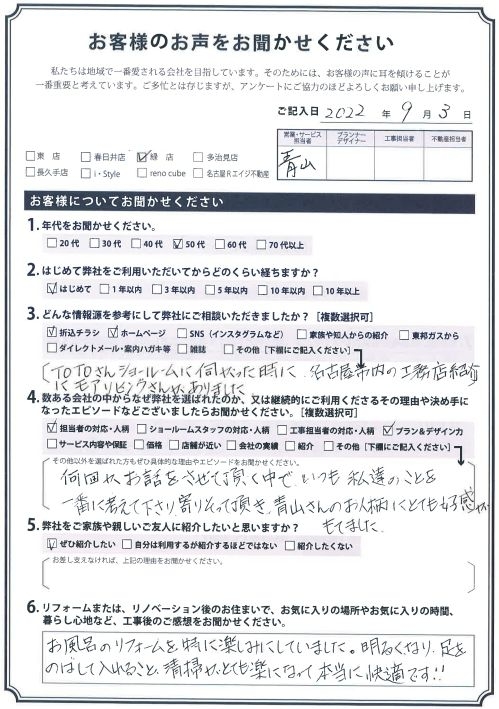 お客様のお声をお聞かせください
私たちは地域で一番愛される会社を目指しています。そのためには、お客様の声に耳を傾けることが
一番重要と考えています。ご多忙とは存じますが、アンケートにご協力のほどよろしくお願い申し上げます。
ご記入日 2022 年 9 月 3 日
営業・サービス担当者 プランナーデザイナー 工事担当者 不動産担当者
青山
□東 店 □春日井店 ☑緑 店 □多治見店
□長久手店 □i・Style □reno cube □名古屋Rエイジ不動産
お客様についてお聞かせください
1.年代をお聞かせください。
□20代 □30代 □40代 ☑50代 □60代 □70代以上
2.はじめて弊社をご利用いただいてからどのくらい経ちますか？
☑はじめて □1年以内 □3年以内 □5年以内 □10年以内 □10年以上
3.どんな情報源を参考にして弊社にご相談いただきましたか？［複数選択可］
☑折込チラシ ☑ホームページ □SNS（インスタグラムなど） □家族や知人からの紹介 □東邦ガスから
□ダイレクトメール・案内ハガキ等 □雑誌 □その他［下欄にご記入ください］
TOTOさんショールームに伺った時に、名古屋市内の工務店紹介
にモアリビングさんがありました
4.数ある会社の中からなぜ弊社を選ばれたのか、又は継続的にご利用くださるその理由や決め手に
なったエピソードなどございましたらお聞かせください。［複数選択可］
☑担当者の対応・人柄 □ショールームスタッフの対応・人柄 □工事担当者の対応・人柄 ☑プラン＆デザイン力
□サービス内容や保証 □価格 □店舗が近い □会社の実績 □紹介 □その他［下欄にご記入ください］
その他以外を選ばれた方もぜひ具体的な理由やエピソードをお聞かせください。
何回か、お話をさせて頂く中で、いつも私達のことを
一番に考えて下さり寄りそって頂き、青山さんのお人柄にとても好感が
もてました。
5.弊社をご家族や親しいご友人に紹介したいと思いますか？
☑ぜひ紹介したい □自分は利用するが紹介するほどではない □紹介したくない
お差し支えなければ、上記の理由をお聞かせください。
6.リフォームまたは、リノベーション後のお住まいで、お気に入りの場所やお気に入りの時間、
暮らし心地など、工事後のご感想をお聞かせください。
お風呂のリフォームを特に楽しみにしていました。明るくなり、足を
のばして入れること、清掃がとても楽になって本当に快適です!!